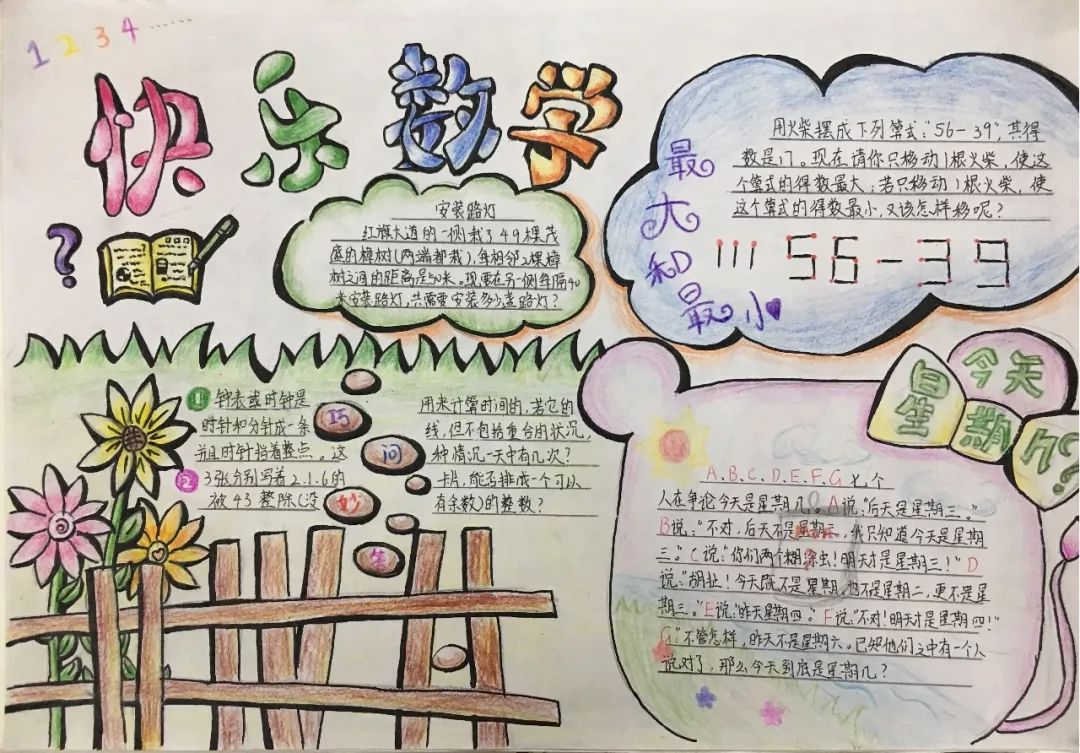 1 2 3 4 ……
快乐数学
?
安装路灯
红旗大道的一侧栽了49棵茂
盛的樟树(两端都栽),每相邻2棵樟
树之间的距离是50米。现要在另一侧每隔40
米安装路灯,共需要安装多少盏路灯?
最大和最小
用火柴摆成下列算式:"56-39",其得
数是17。现在请你只移动1根火柴,使这
个算式的得数最大;若只移动1根火柴,使
这个算式的得数最小,又该怎样移呢?
56-39
巧问妙答
1 钟表或时钟是 用来计算时间的,若它的
时针和分针成一条 线,但不包括重合的状况,
并且时针指着整点。这 种情况一天中有几次?
2 3张分别写着2.1.6的 卡片,能否排成一个可以
被43整除(没 有余数)的整数?
今天
是星期几?
A.B.C.D.E.F.G七个
人在争论今天是星期几。A说:"后天是星期三。"
B说:"不对,后天不是星期三,我只知道今天是星期
三。"C说:"你们两个糊涂虫!明天才是星期三!"D
说:"胡扯!今天既不是星期一,也不是星期二,更不是星
期三。"E说:"昨天星期四。"F说:"不对!明天才是星期四!"
G:"不管怎样,昨天不是星期六。已知他们之中有一个人
说对了,那么今天到底是星期几?